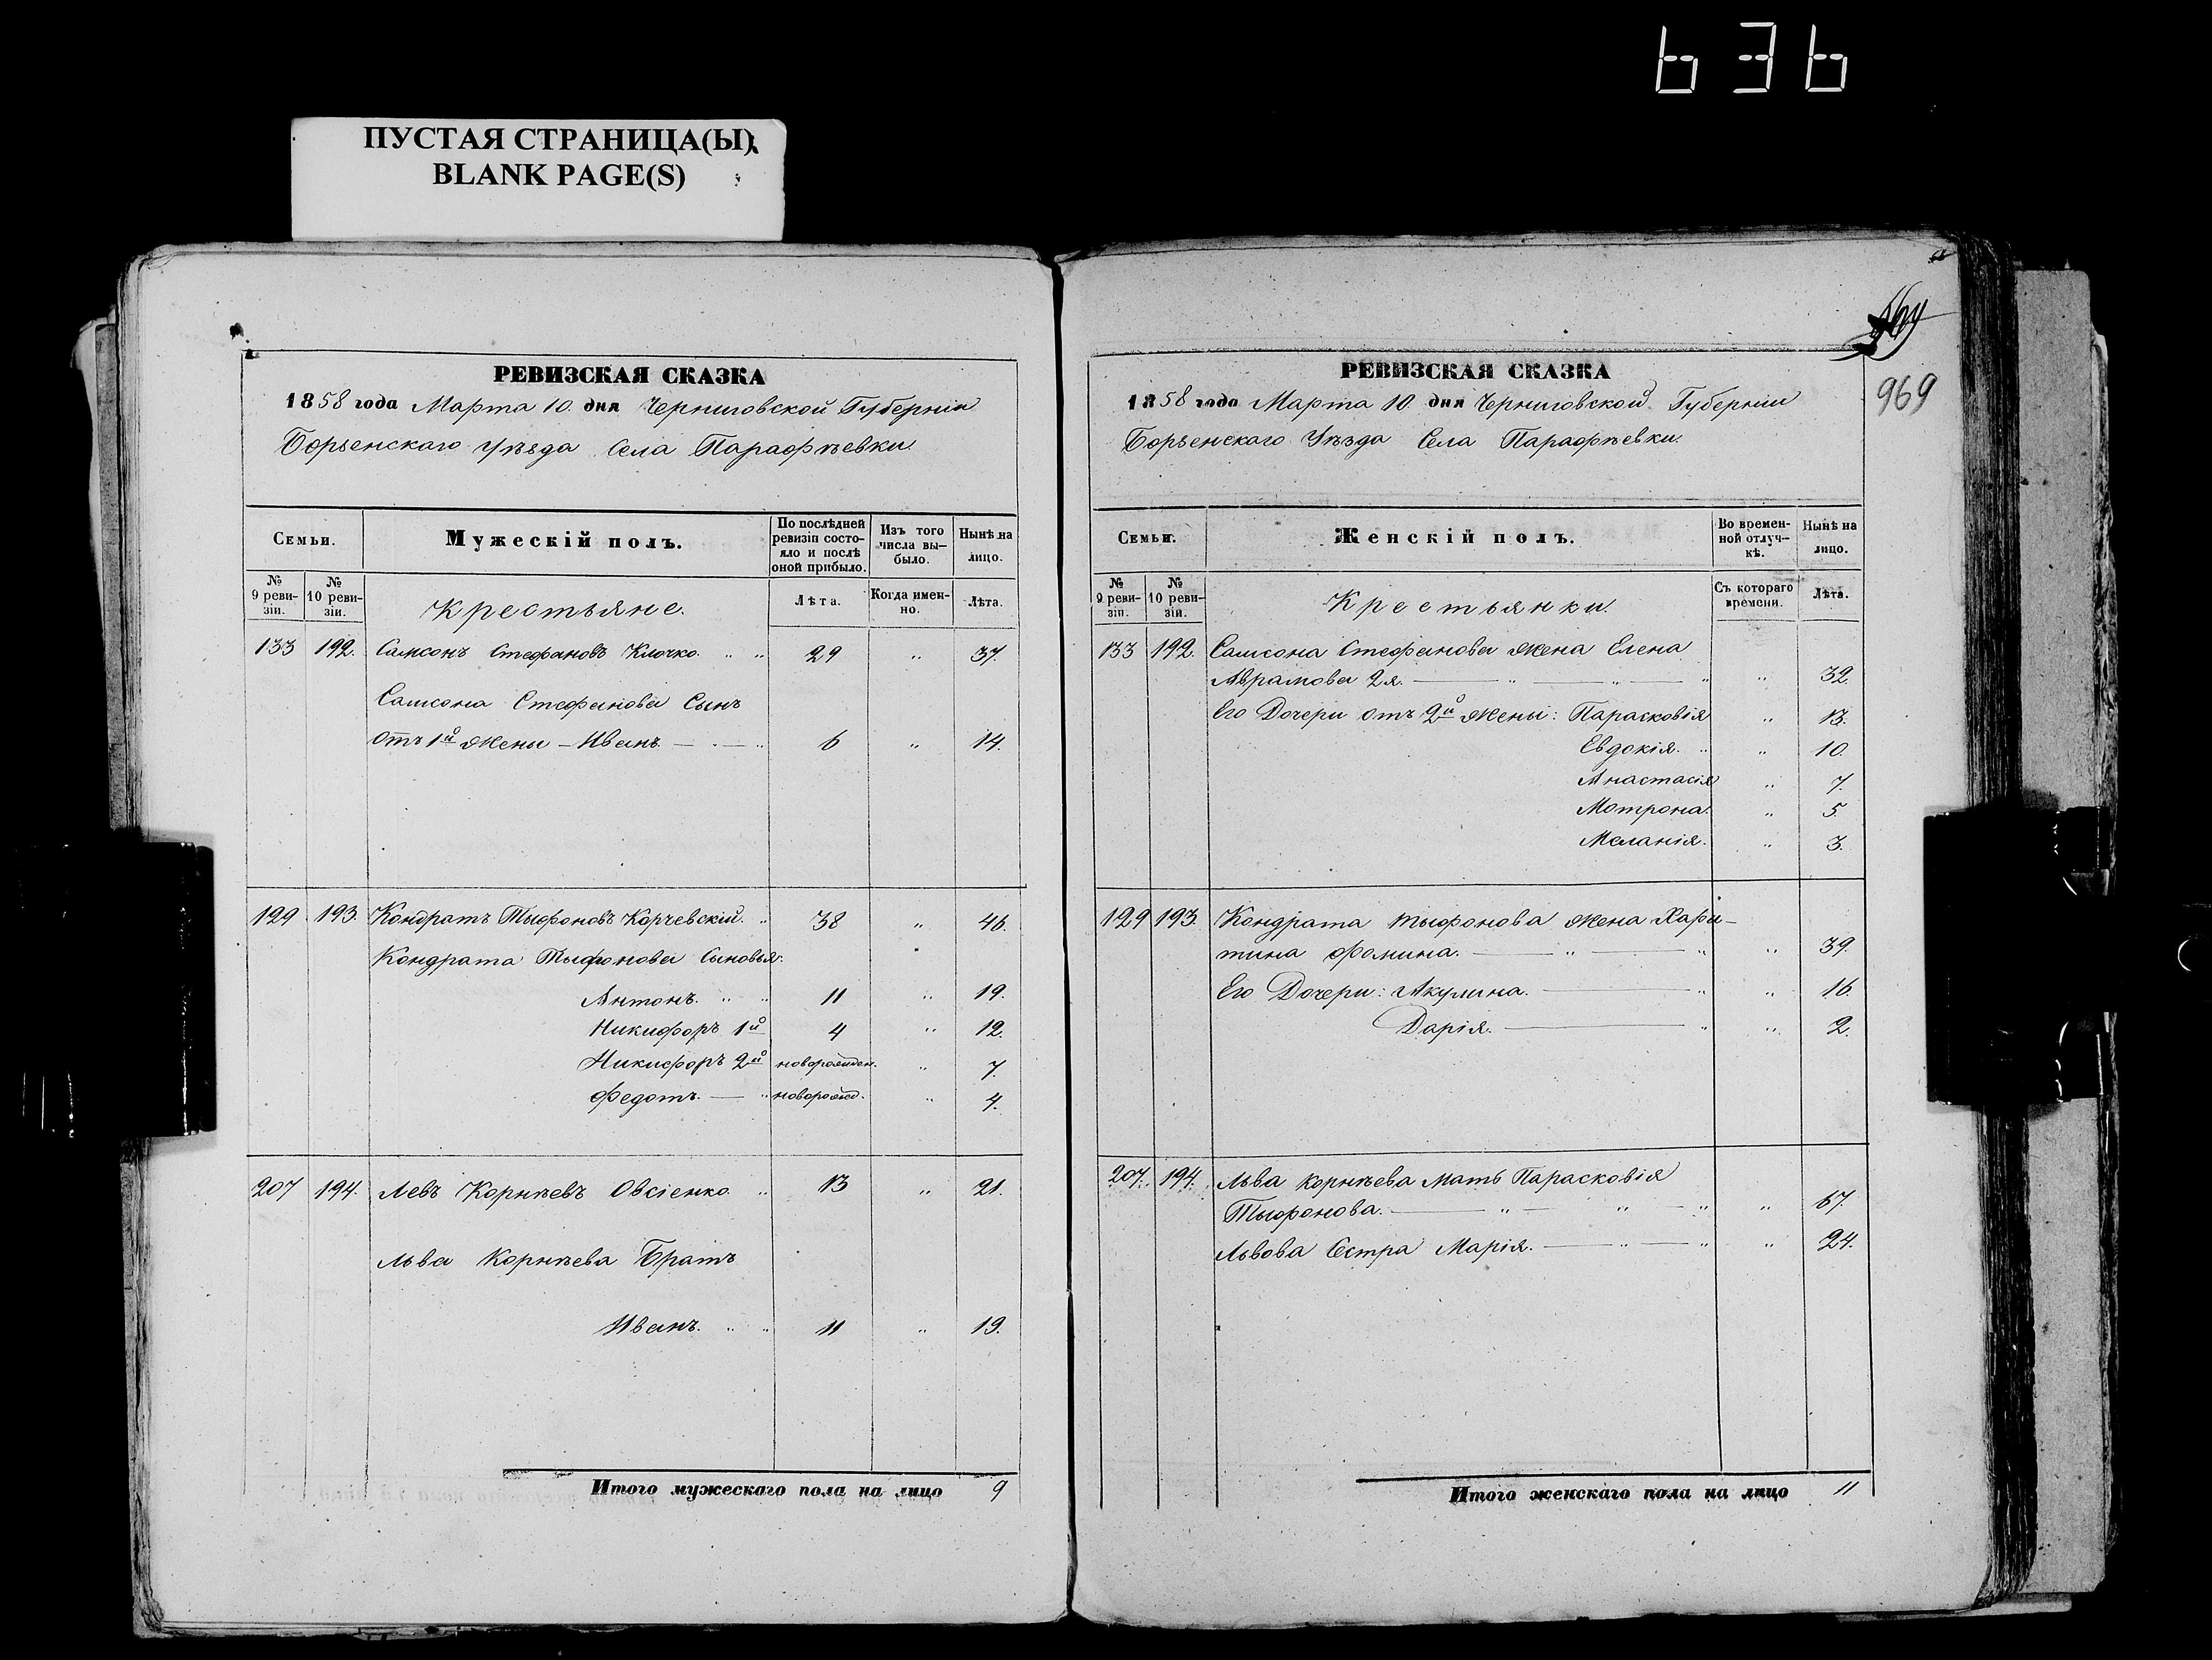 636
ПУСТАЯ СТРАНИЦА(Ы)
BLANK PAGE(S)
РЕВИЗСКАЯ СКАЗКА
1858 года Марта 10. дня Черниговской Губерніи
Борзенскаго Уѣзда Села Парафѣевки.
Семьи.
Мужескій полъ.
По послѣдней ревизіи состо-
яло и послѣ оной прибыло.
Изъ того числа вы-
было.
Нынѣ на лицо.
№ 9 реви-
зіи.
№ 10 реви-
зіи.
Крестьяне.
Лѣта.
Когда имен-
но.
Лѣта.
133 192. Самсонъ Стефановъ Клочко. " " 29 " 37.
Самсона Стефанова Сынъ
отъ 1й Жены – Иванъ. — " 6 " 14.
129 193. Кондратъ Тыфоновъ Корчевскій. " 38 " 46.
Кондрата Тыфонова Сыновья:
Антонъ. " " 11 " 19.
Никифоръ 1й 4 " 12.
Никифоръ 2й новорожден. " 7.
Федотъ. — " новорожд. " 4.
207 194. Левъ Корнѣевъ Овсіенко. " 13 " 21.
Льва Корнѣева Братъ
Иванъ. " " 11 " 19.
Итого мужескаго пола на лицо 9
969
РЕВИЗСКАЯ СКАЗКА
1858 года Марта 10. дня Черниговской Губерніи
Борзенскаго Уѣзда Села Парафѣевки.
Семьи.
Женскій полъ.
Во времен-
ной отлуч-
кѣ.
Нынѣ на лицо.
№ 9 реви-
зіи.
№ 10 реви-
зіи.
Крестьянки.
Съ котораго времени.
Лѣта.
133 192. Самсона Стефанова Жена Елена
Аврамова 2я. — " — " — " " 32.
Его Дочери отъ 2й Жены: Парасковія " 13.
Евдокія. " " 10.
Анастасія " 7.
Мотрона. " 5.
Меланія. " 3.
129 193. Кондрата Тыфонова Жена Хари-
тина Фомина. — " — " " 39.
Его Дочери: Акулина. — " " 16.
Дарія. — " " 2.
207. 194. Льва Корнѣева Мать Парасковія
Тыфонова. — " — " — " " 67.
Львова Сестра Марія. — " — " " 24.
Итого женскаго пола на лицо 11